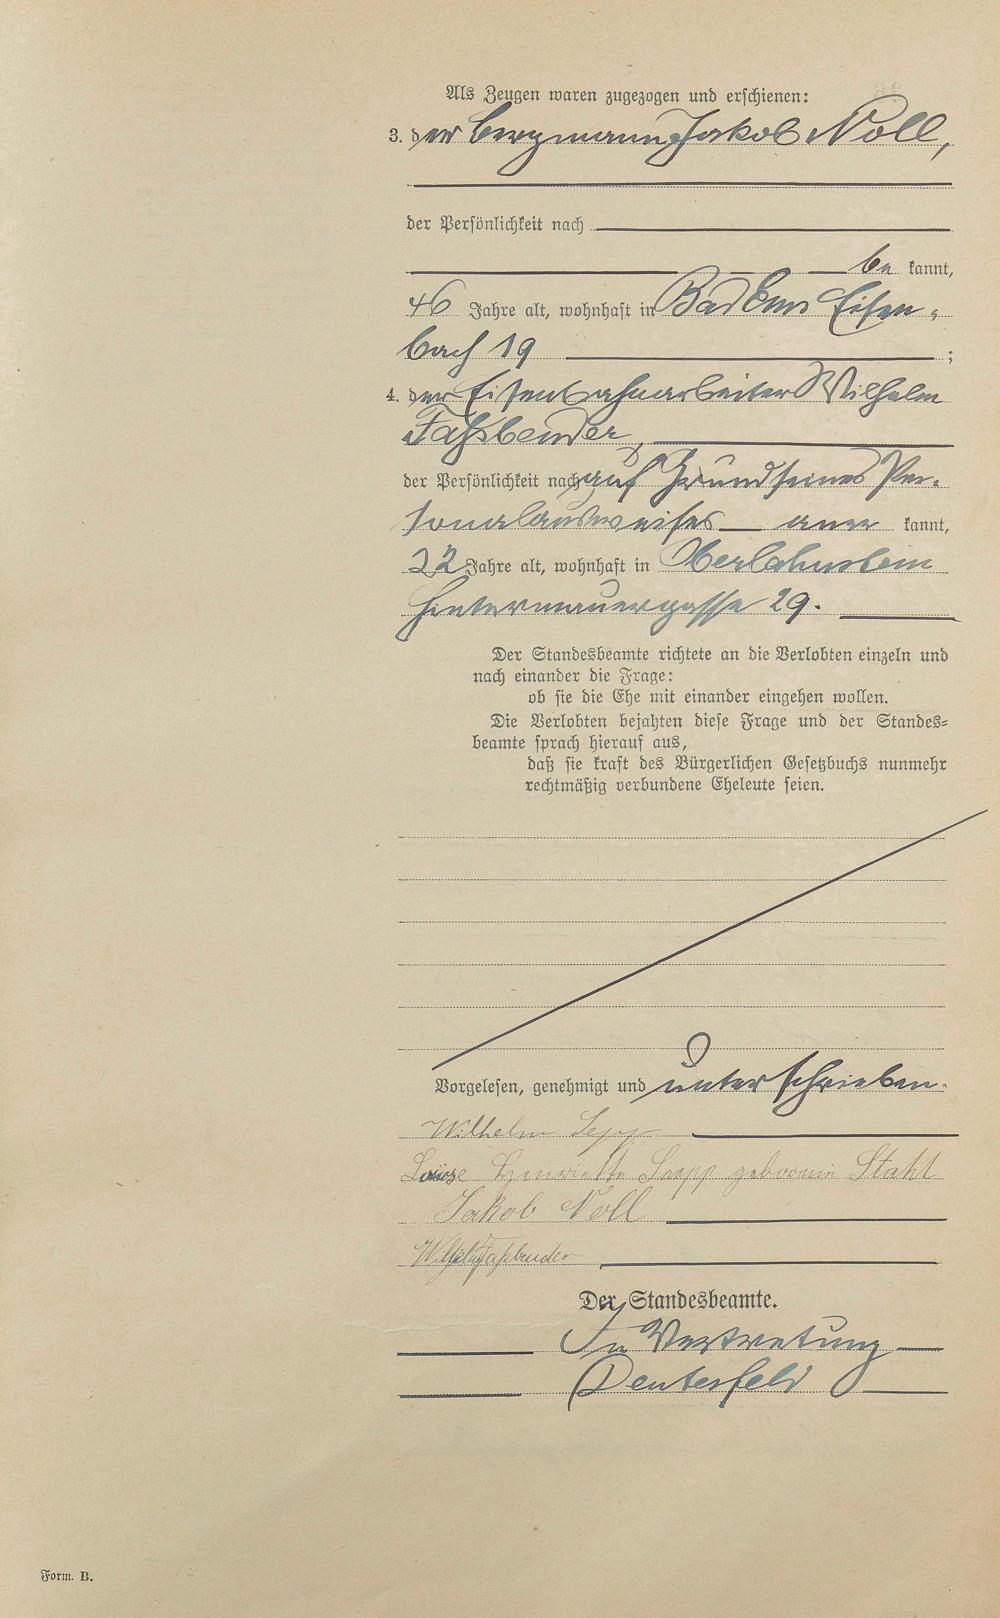 Als Zeugen waren zugezogen und erschienen:
3. der Bergmann Jakob Noll,
der Persönlichkeit nach
be kannt,
46 Jahre alt, wohnhaft in Bad Ems Eisen-
bach 19 ;
4. der Eisenbahnarbeiter Wilhelm
Faßbender,
der Persönlichkeit nach auf Grund seines Per-
sonalausweises aner kannt,
22 Jahre alt, wohnhaft in Oberlahnstein
Hintermauergasse 29.
Der Standesbeamte richtete an die Verlobten einzeln und
nach einander die Frage:
ob sie die Ehe mit einander eingehen wollen.
Die Verlobten bejahten diese Frage und der Standes-
beamte sprach hierauf aus,
daß sie kraft des Bürgerlichen Gesetzbuchs nunmehr
rechtmäßig verbundene Eheleute seien.
Vorgelesen, genehmigt und unterschrieben.
Wilhelm Sepp
Henriette Sepp geborene Stahl
Jakob Noll
Wilhelm Faßbender
Der Standesbeamte.
In Vertretung
Form. B.